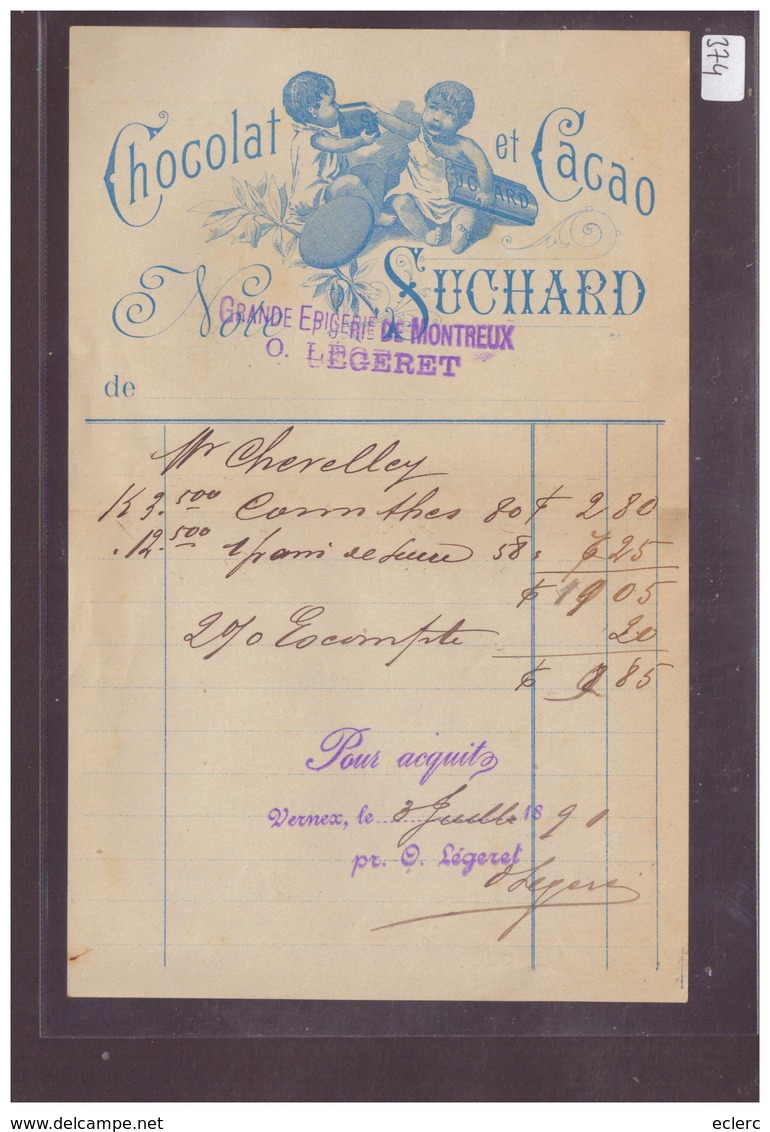 374
Chocolat et Cacao
SUCHARD
Note SUCHARD
GRANDE EPICERIE DE MONTREUX
O. LÉGERET
de
Mr Cherelley
K 3.500 Corinthes 80 f 2 80
. 12.500 1 pain de sucre 58 " 7 25
f 10 05
2% Escompte 20
f 9 85
Pour acquit
Vernex, le 3 Juillet 18 90
pr. O. Légeret
O Légeret
delcampe.net
eclerc